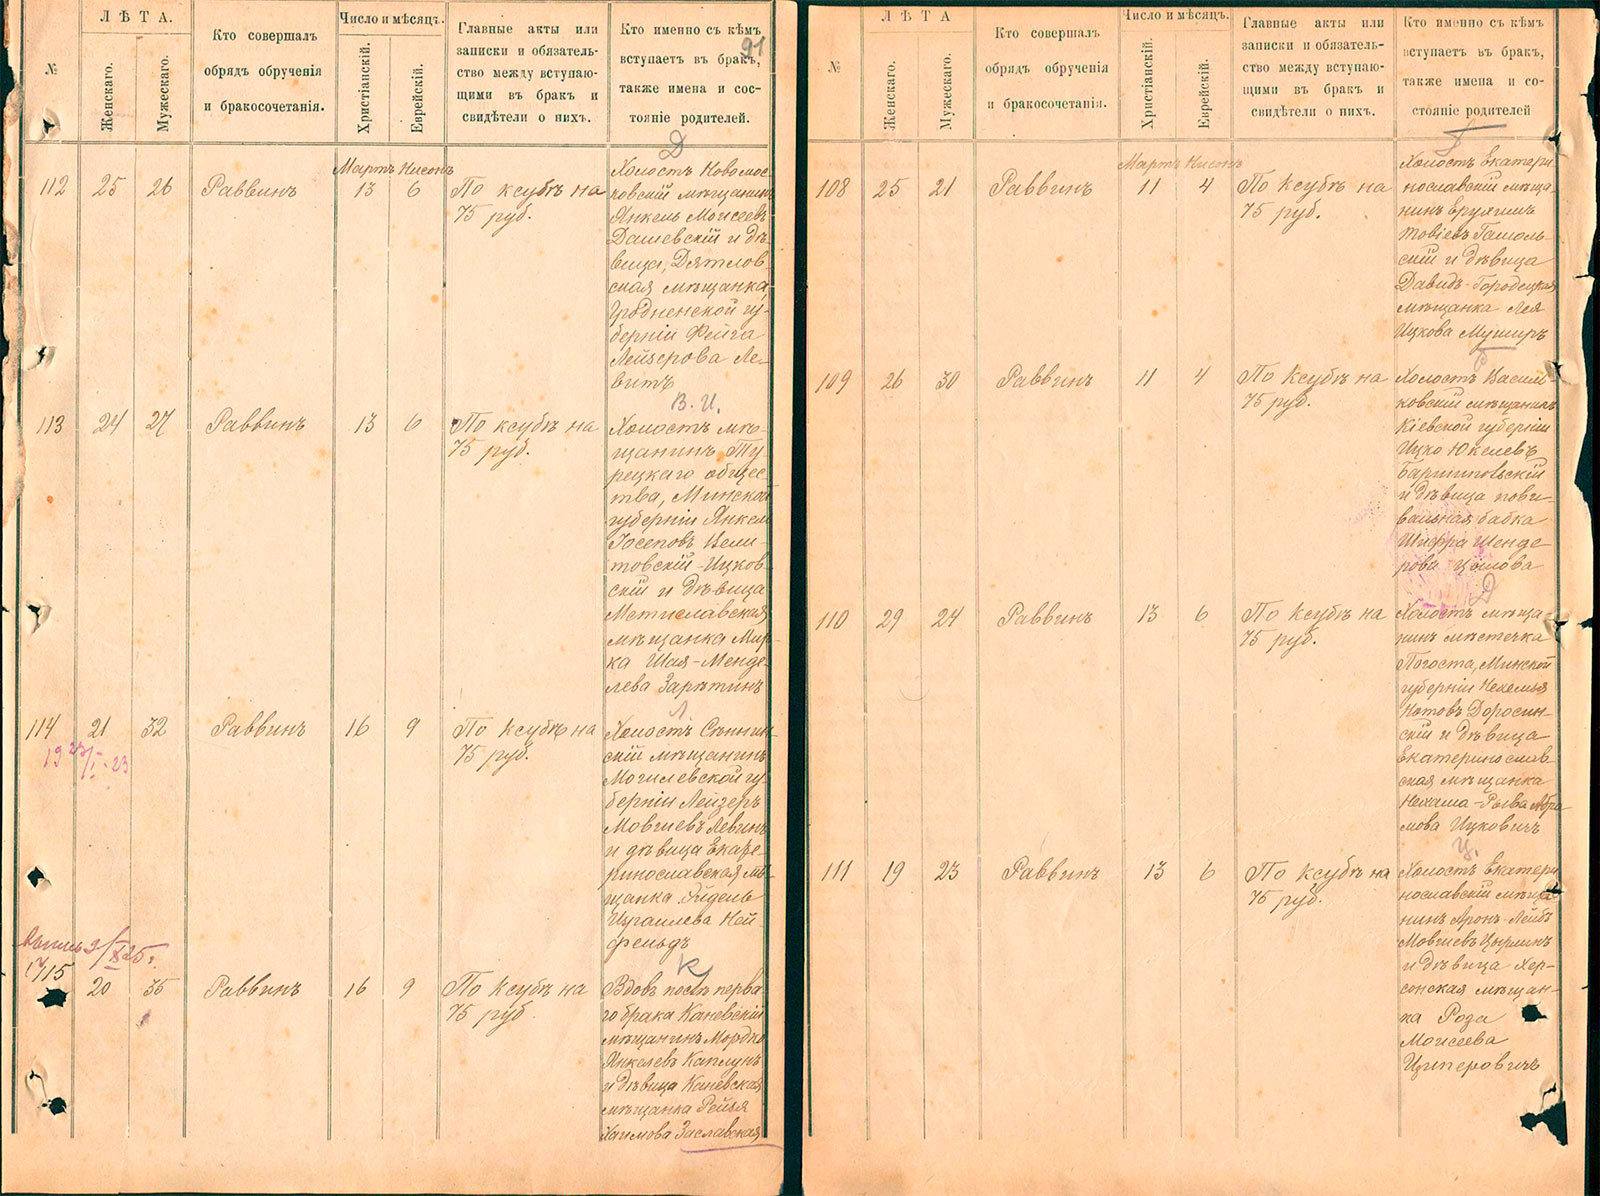 91
№
ЛѢТА.
Женскаго.
Мужескаго.
Кто совершалъ
обрядъ обрученія
и бракосочетанія.
Число и мѣсяцъ.
Христіанскій.
Еврейскій.
Главные акты или
записки и обязатель-
ство между вступаю-
щими въ бракъ и
свидѣтели о нихъ.
Кто именно съ кѣмъ
вступаетъ въ бракъ,
также имена и сос-
тояніе родителей.
Мартъ Нисонъ
112 25 26 Раввинъ 13 6 По ксубѣ на
75 руб.
Д
Холостъ Новомос-
ковскій мѣщанинъ
Янкель Моисеевъ
Дашевскій и дѣ-
вица, Дятлов-
ская мѣщанка,
Гродненской гу-
берніи Фейга
Лейзерова Ле-
витъ
113 24 27 Раввинъ 13 6 По ксубѣ на
75 руб.
В. И.
Холостъ мѣ-
щанинъ Ту-
рецкаго общес-
тва, Минской
губерніи Янкель
Іосеповъ Вели-
товскій-Ицков-
скій и дѣвица
Мстиславская
мѣщанка Мир-
ка Шая-Менде-
лева Зарѣтинъ
114 21 32 Раввинъ 16 9 По ксубѣ на
75 руб.
Л
Холостъ Сѣннин-
скій мѣщанинъ
Могилевской гу-
берніи Лейзеръ
Мовшевъ Левинъ
и дѣвица Екате-
ринославская мѣ-
щанка Эйдель
Израилева Ней-
фельдъ
115 20 35 Раввинъ 16 9 По ксубѣ на
75 руб
К
Вдовъ послѣ перва
го брака Каневскій
мѣщанинъ Мордко
Янкелевъ Каплунъ
и дѣвица Каневская
мѣщанка Рейзя
Хаимова Заславская
№
ЛѢТА
Женскаго.
Мужескаго.
Кто совершалъ
обрядъ обрученія
и бракосочетанія.
Число и мѣсяцъ.
Христіанскій.
Еврейскій.
Главные акты или
записки и обязатель-
ство между вступаю-
щими въ бракъ и
свидѣтели о нихъ.
Кто именно съ кѣмъ
вступаетъ въ бракъ,
также имена и со-
стояніе родителей
Мартъ Нисонъ
108 25 21 Раввинъ 11 4 По ксубѣ на
75 руб.
Г
Холостъ Екатери
нославскій мѣща-
нинъ Ерухимъ
Товіевъ Гамоль-
скій и дѣвица
Давидъ-Городецкая
мѣщанка Лея
Ицкова Муширъ
109 26 30 Раввинъ 11 4 По ксубѣ на
75 руб.
Б
Холостъ Василь-
ковскій мѣщанинъ
Кіевской губерніи
Ицко Юкелевъ
и дѣвица пови-
вальная бабка
Шифра Шенде
рова
110 29 24 Раввинъ 13 6 По ксубѣ на
75 руб.
Д
Холостъ мѣща
нинъ мѣстечка
Погоста, Минской
губерніи Нехемья
Нотовъ Доросин-
скій и дѣвица
Екатеринослав-
ская мѣщанка
Нехама-Рыва Абра
мова Ицковичъ
111 19 23 Раввинъ 13 6 По ксубѣ на
75 руб.
Ц.
Холостъ Екатери
нославскій мѣща
нинъ Аронъ-Лейбъ
Мовшевъ Цырлинъ
и дѣвица Хер-
сонская мѣщан-
ка Роза
Моисеева
Циперовичъ